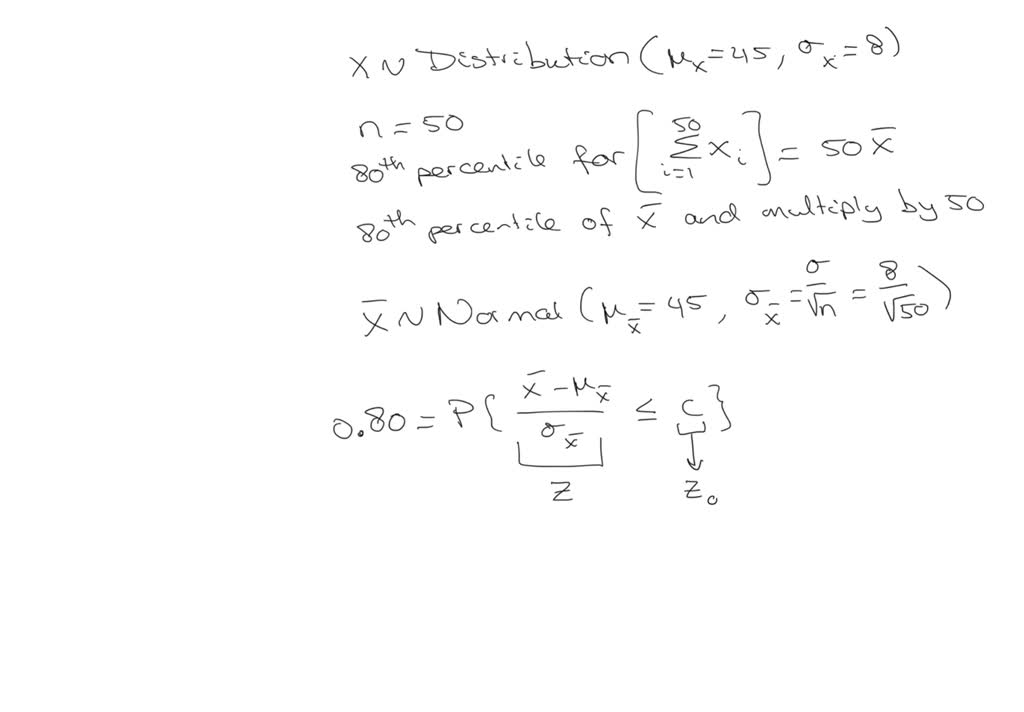 X ~ Distribution (μ_X = 45, σ_X = 8)
n = 50
80th percentile for [ Σ_{i=1}^{50} X_i ] = 50 X̄
80th percentile of X̄ and multiply by 50
X̄ ~ Normal (μ_X̄ = 45, σ_X̄ = σ/√n = 8/√50)
0.80 = P{ (X̄ − μ_X̄)/σ_X̄ ≤ c }
Z z₀